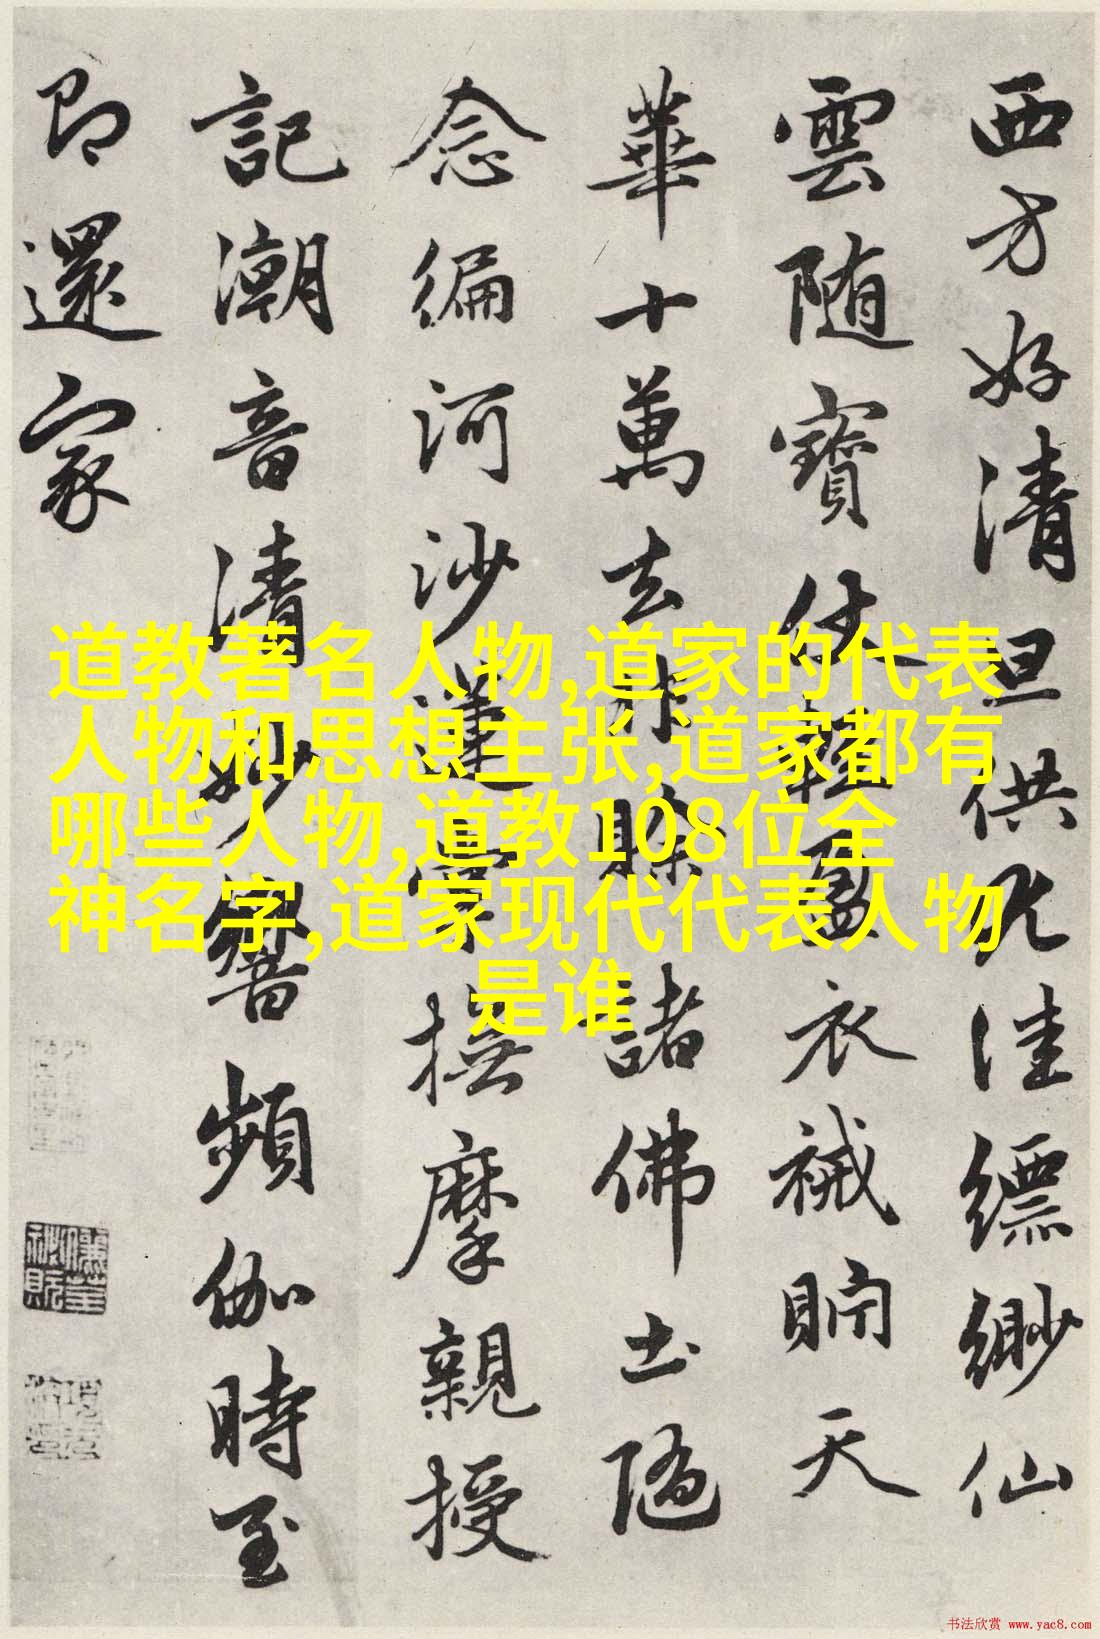 西方好清旦供尤佳縹緲仙
雲随寶仗輕盈衣祴貯天
華十萬去非賖諸佛土隨
念徧河沙蓮掌撫摩親授
記潮音清妙響頻伽時至
即還家
道教著名人物,道家的代表
人物和思想主张,道家都有
哪些人物,道教108位全
神名字,道家现代代表人物
是谁
书法欣赏 www.yac8.com